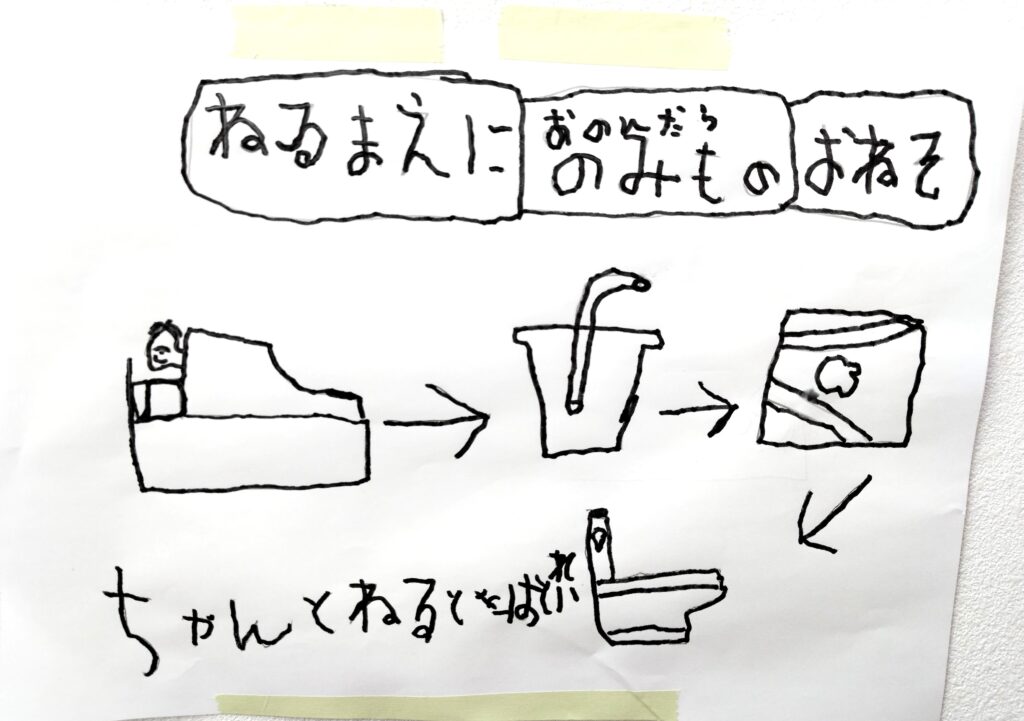 ねるまえに
おのんだら
のみもの
おねそ
ちゃんとねると